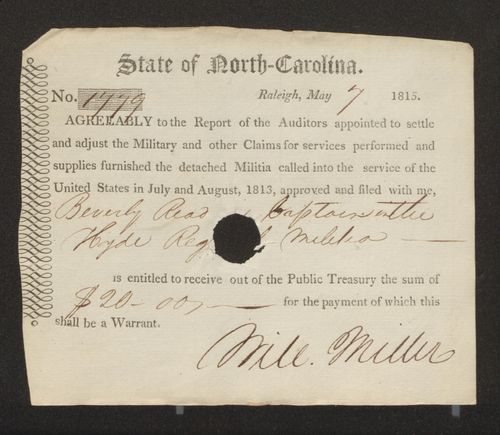 State of North-Carolina.
No. 1779 Raleigh, May 7 1815.
AGREEABLY to the Report of the Auditors appointed to settle
and adjust the Military and other Claims for services performed and
supplies furnished the detached Militia called into the service of the
United States in July and August, 1813, approved and filed with me,
Beverly Read Captain in the
Hyde Reg Militia
is entitled to receive out of the Public Treasury the sum of
$20.00 for the payment of which this
shall be a Warrant.
Will. Miller